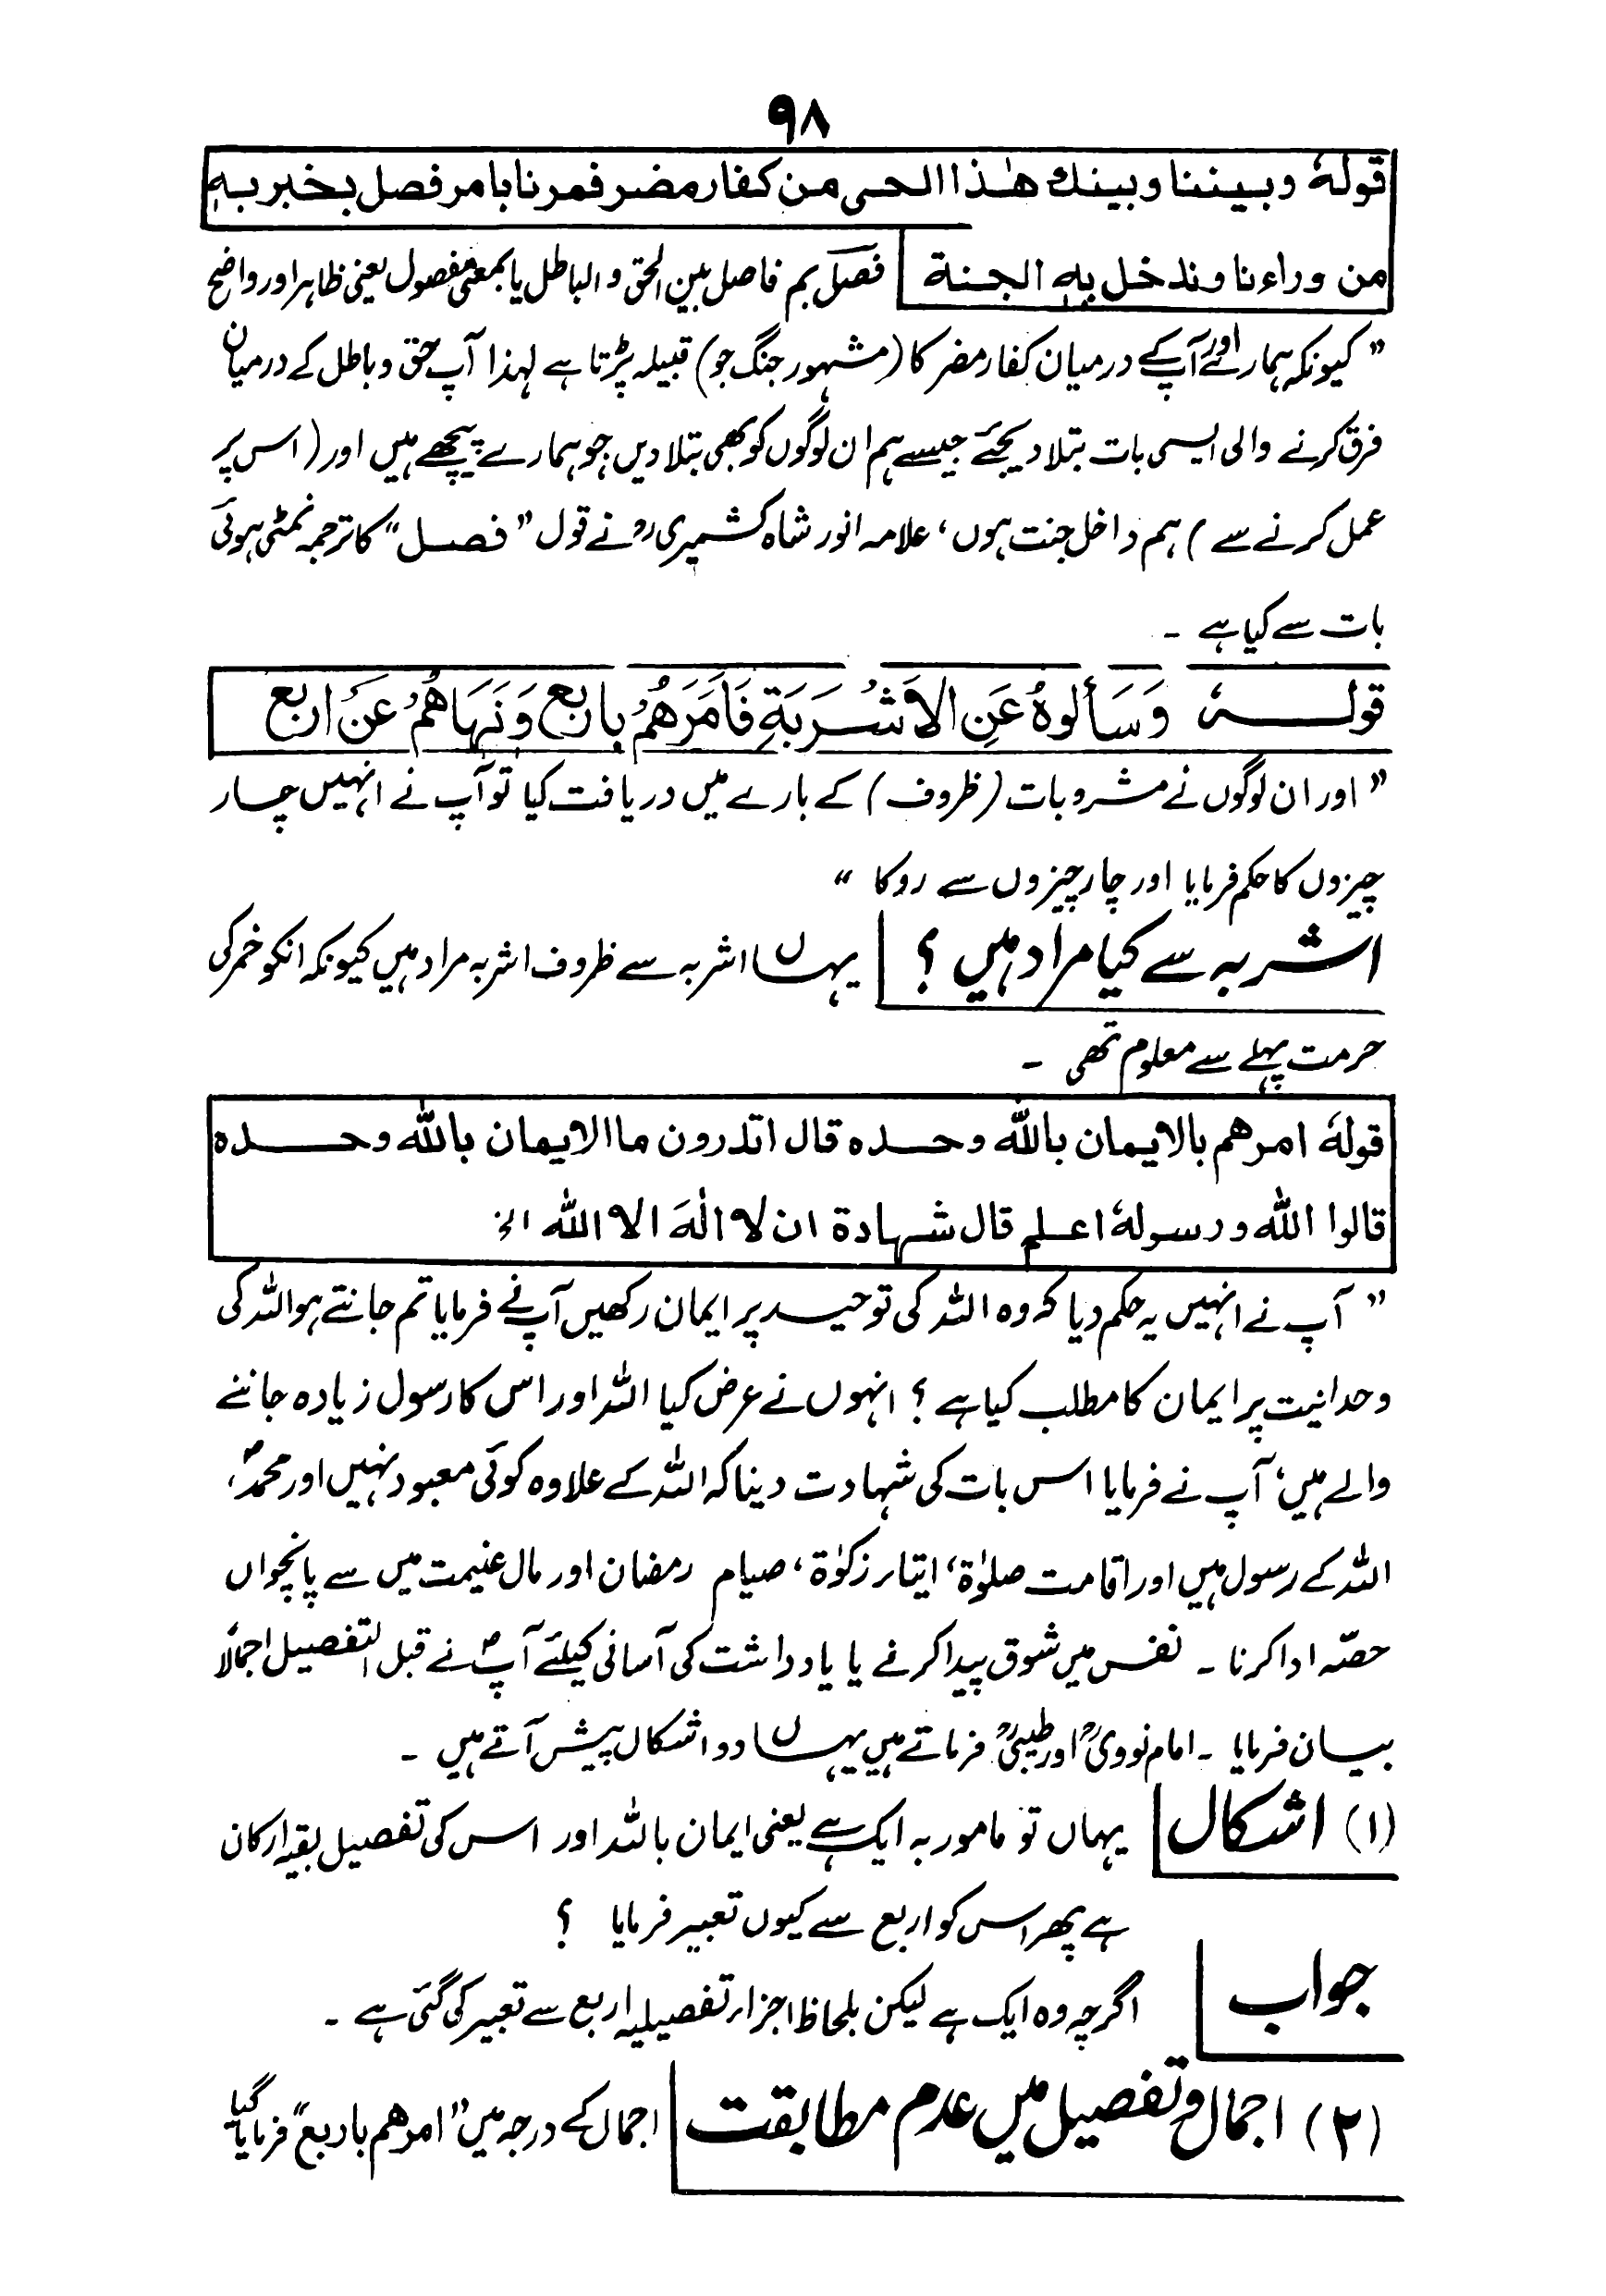 ۹۸
قولہٗ وبیننا وبینك هٰذا الحی من کفار مضر فمرنا بامر فصل بخبر بہٖ
من وراءنا وندخل بہٖ الجنة فصلؔ بم فاصل بین الحق و الباطل یا بمعنی مفصول یعنی ظاہر اور واضح
” کیونکہ ہمارے اور آپ کے درمیان کفار مضر کا (مشہور جنگ جو) قبیلہ پڑتا ہے لہذا آپ حق و باطل کے درمیان
فرق کرنے والی ایسی بات بتلا دیجئے جیسے ہم ان لوگوں کو بھی بتلا دیں جو ہمارے پیچھے ہیں اور (اس پر
عمل کرنے سے) ہم داخل جنت ہوں، علامہ انور شاہ کشمیری رو نے قول ” فصل “ کا ترجمہ نمٹی ہوئی
بات سے کیا ہے ۔
قولہٗ وَسَأَلوهُ عَنِ الاَشْرَبَةِ فَاَمَرَهُمْ بِاربع وَنَهَاهُمْ عَنْ اربع
” اور ان لوگوں نے مشروبات (ظروف) کے بارے میں دریافت کیا تو آپ نے انہیں چار
چیزوں کا حکم فرمایا اور چار چیزوں سے روکا “
اشربہ سے کیا مراد ہیں ؟ یہاں اشربہ سے ظروف اشربہ مراد ہیں کیونکہ انکو خمر کی
حرمت پہلے سے معلوم تھی ۔
قولہٗ امرهم بالایمان باللّٰه وحده قال اتدرون ما الایمان باللّٰه وحده
قالوا اللّٰه ورسولہٗ اعلم قال شهادة ان لا الٰهَ الا اللّٰه الخ
” آپ نے انہیں یہ حکم دیا کہ وہ اللہ کی توحید پر ایمان رکھیں آپؐ نے فرمایا تم جانتے ہو اللہ کی
وحدانیت پر ایمان کا مطلب کیا ہے ؟ انہوں نے عرض کیا اللہ اور اس کا رسول زیادہ جاننے
والے ہیں، آپ نے فرمایا اس بات کی شہادت دینا کہ اللہ کے علاوہ کوئی معبود نہیں اور محمدؐ،
اللہ کے رسول ہیں اور اقامت صلوٰۃ، ایتاء زکوٰۃ، صیام رمضان اور مال غنیمت میں سے پانچواں
حصّہ ادا کرنا ۔ نفس میں شوق پیدا کرنے یا یادداشت کی آسانی کیلئے آپؐ نے قبل التفصیل اجمالاً
بیان فرمایا ۔ امام نوویؒ اور طیبیؒ فرماتے ہیں یہاں دو اشکال پیش آتے ہیں ۔
(۱) اشکال یہاں تو مامور بہ ایک ہے یعنی ایمان باللہ اور اس کی تفصیل بقیہ ارکان
ہے پھر اس کو اربع سے کیوں تعبیر فرمایا ؟
جواب اگرچہ وہ ایک ہے لیکن بلحاظ اجزاء تفصیلیہ اربع سے تعبیر کی گئی ہے ۔
(۲) اجمال و تفصیل میں عدم مطابقت اجمال کے درجہ میں ” امرهم باربع “ فرمایا گیا